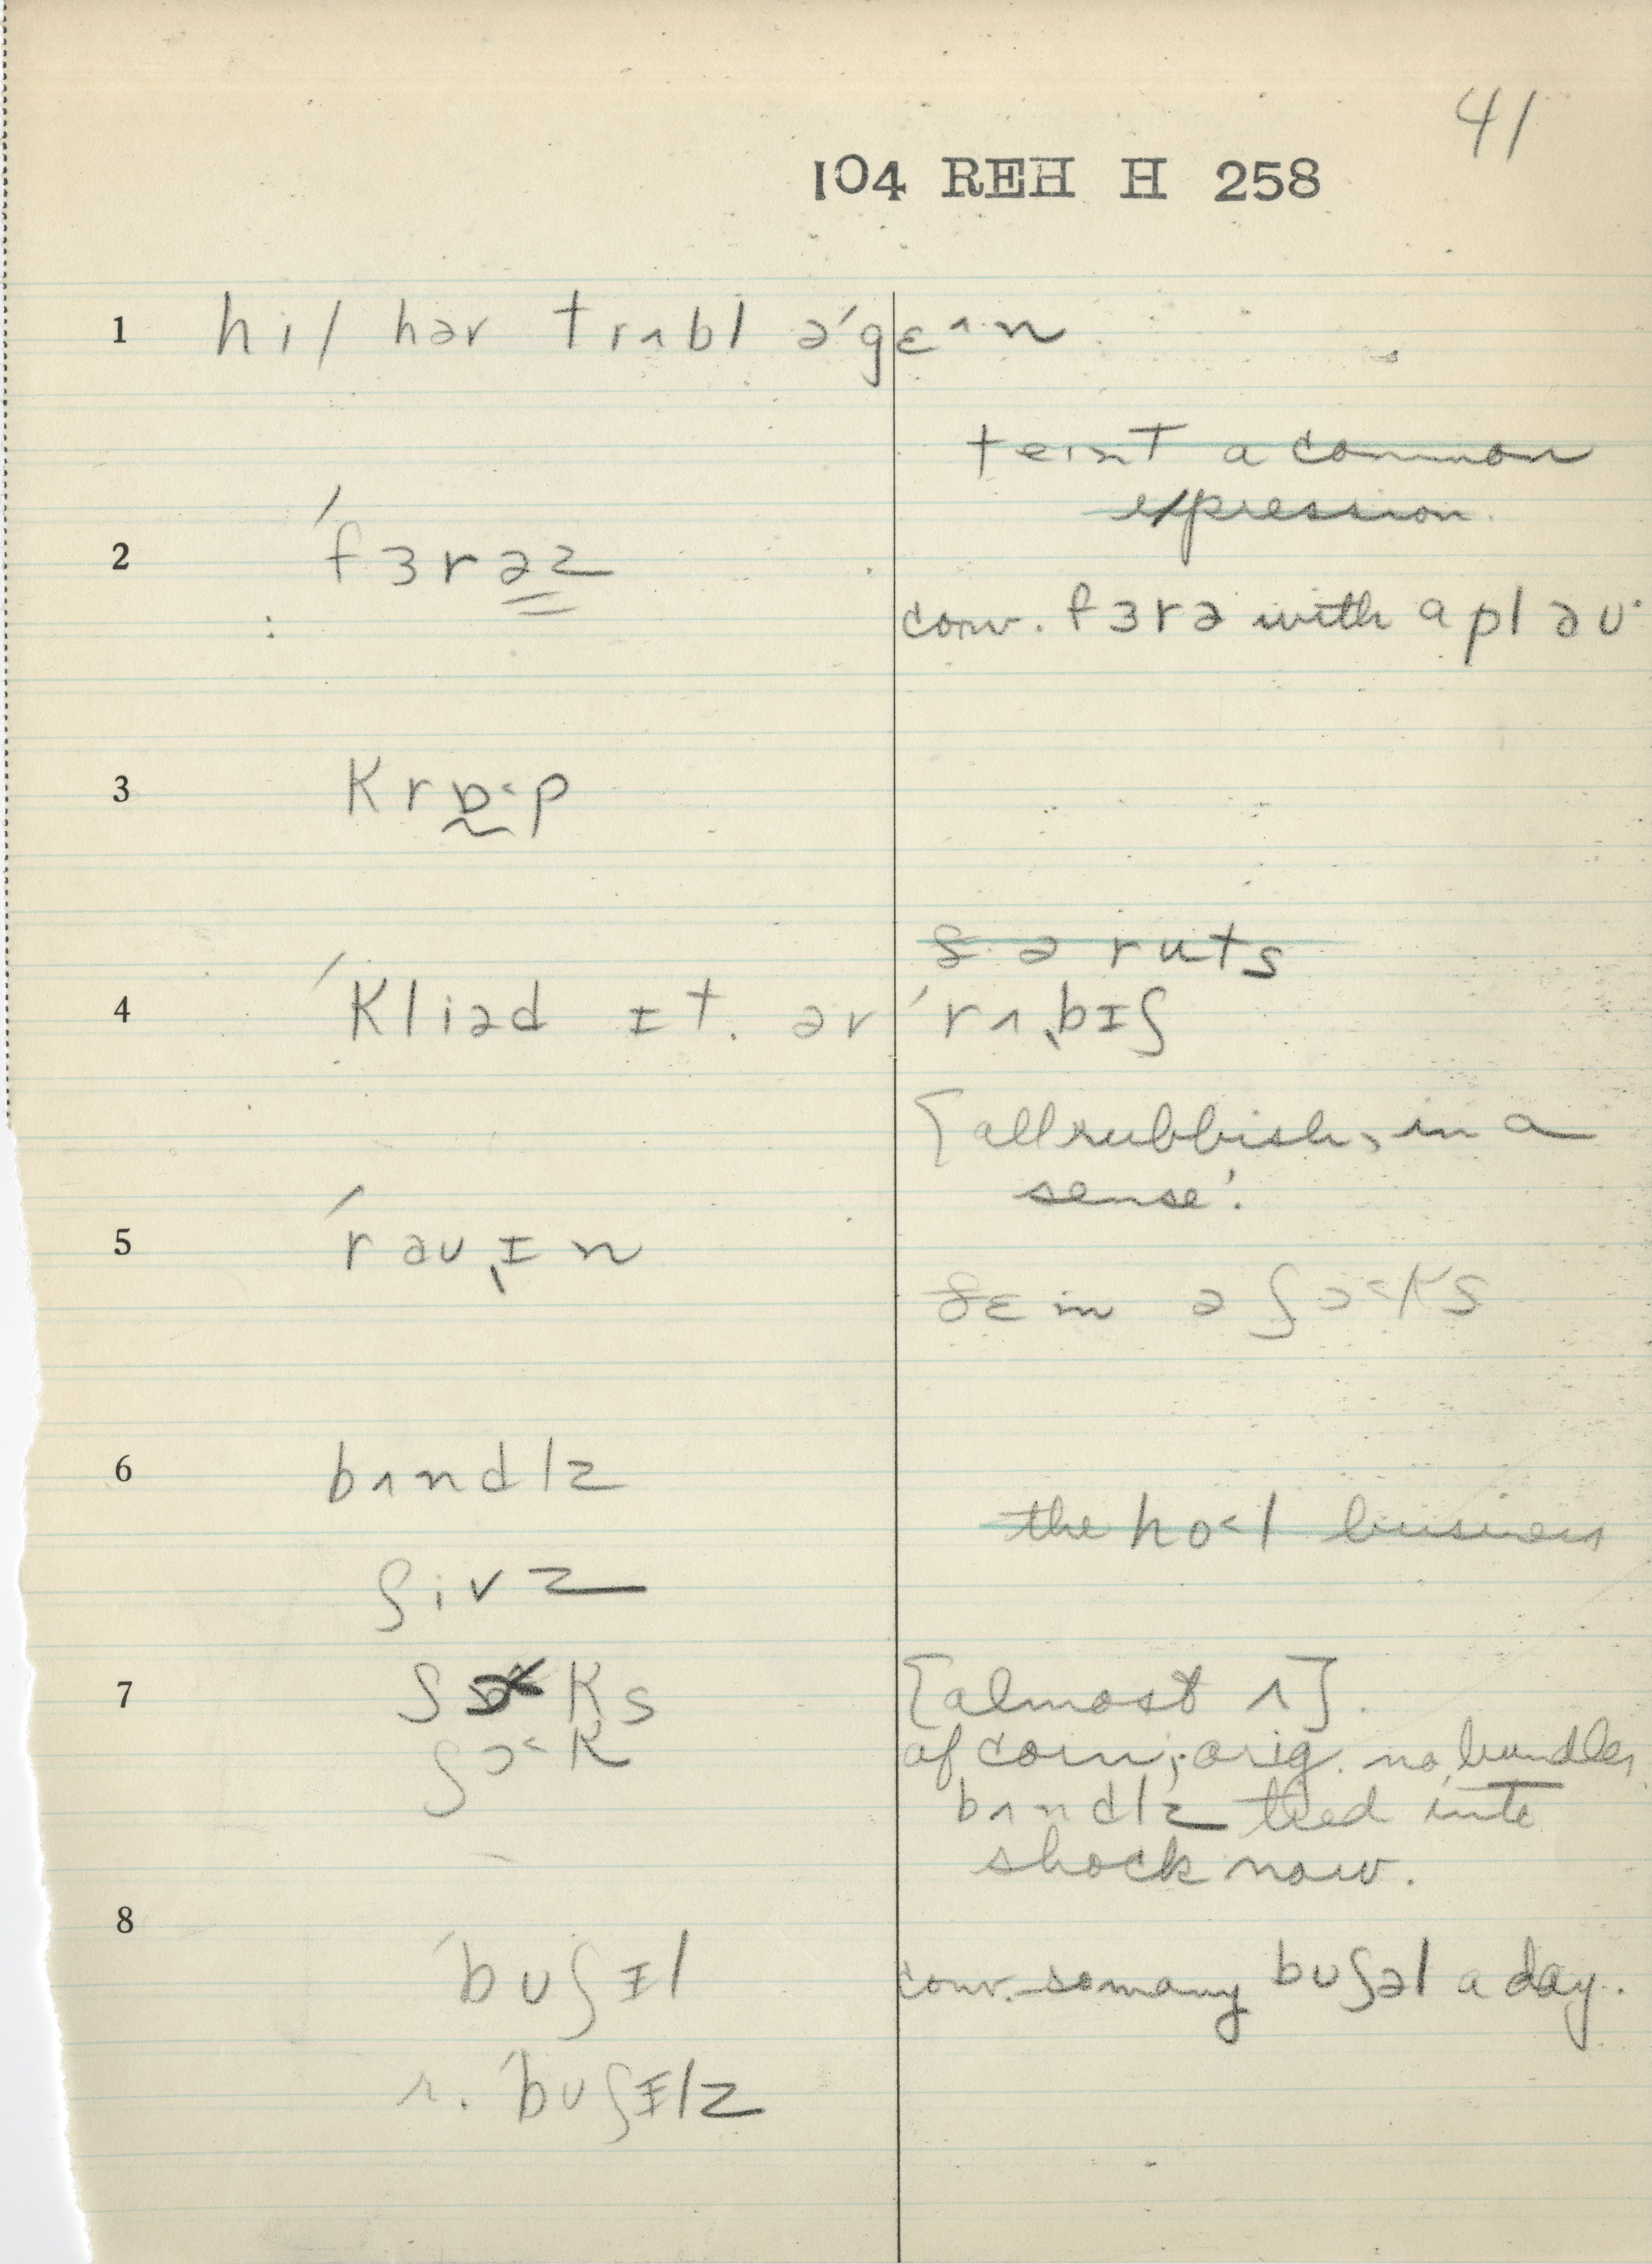 41
104 REH H 258
1 hil hər trʌbl ə'gɛ^n
teɪnt a common
expression.
2 'fɜrəz
conv. fɜrə with a pləʊ
3 krɒ˂p
ðə ruts
4 'kliəd ɪt. ər 'rʌˌbɪʃ
[all rubbish, in a
sense'.
5 'rəʊˌɪn
ðɛ in ə ʃɔ˂ks
6 bʌndlz
the ho˂l business
ʃivz
7 ʃ ks [almost ʌ].
ʃɔ˂k of corn; orig. no bundles
bʌndlz tied into
shock now.
8
'bʊʃɪl conv. so many bʊʃəl a day.
r. 'bʊʃɪlz